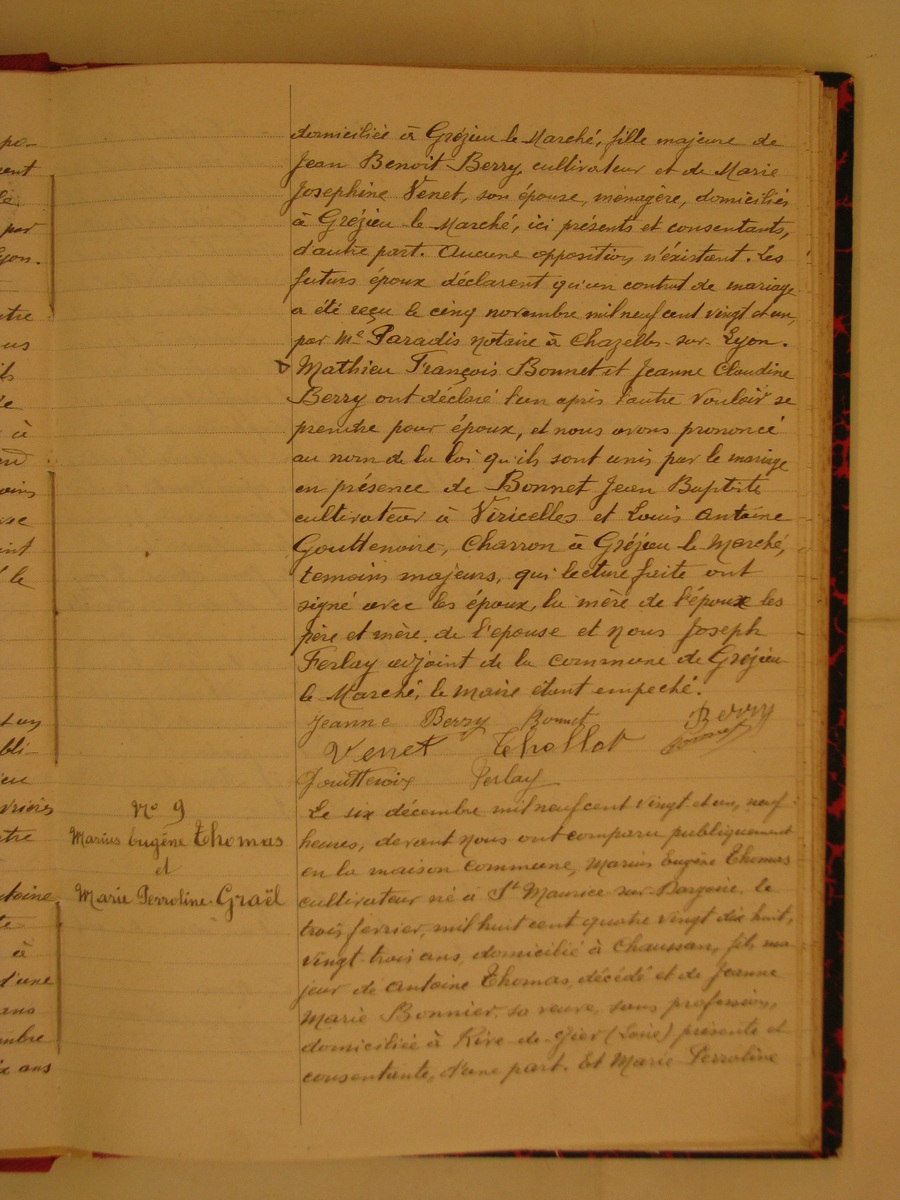 domiciliée à Grézieu le Marché, fille majeure de
Jean Benoit Berry, cultivateur et de Marie
Josephine Venet, son épouse, ménagère, domiciliés
à Grézieu le Marché, ici présents et consentants,
d'autre part. Aucune opposition n'éxistant. Les
futurs époux déclarent qu'un contrat de mariage
a été reçu le cinq novembre mil neuf cent vingt et un,
par Me Paradis notaire à Chazelles-sur-Lyon.
Mathieu François Bonnet et Jeanne Claudine
Berry ont déclaré l'un après l'autre vouloir se
prendre pour époux, et nous avons prononcé
au nom de la loi qu'ils sont unis par le mariage
en présence de Bonnet Jean Baptiste
cultivateur à Viricelles et Louis Antoine
Gouttenoire, Charron à Grézieu le Marché,
temoins majeurs, qui lecture faite ont
signé avec les époux, la mère de l'époux les
père et mère de l'epouse et nous Joseph
Ferlay adjoint de la commune de Grézieu
le Marché, le maire étant empeché.
Jeanne Berry Bonnet Berry
Venet Thollot
Gouttenoire Ferlay
No 9
Marius Eugène Thomas
et
Marie Perroline Graël
Le six décembre mil neuf cent vingt et un, neuf
heures, devant nous ont comparu publiquement
en la maison commune, Marius Eugène Thomas
cultivateur né à St Maurice-sur-Dargoire, le
trois fevrier, mil huit cent quatre vingt dix huit,
vingt-trois ans, domicilié à Chaussan, fils ma-
jeur de Antoine Thomas, décédé et de Jeanne
Marie Bonnier, sa veuve, sans profession,
domiciliée à Rive-de-Gier (Loire) présente et
consentante, d'une part. Et Marie Perroline